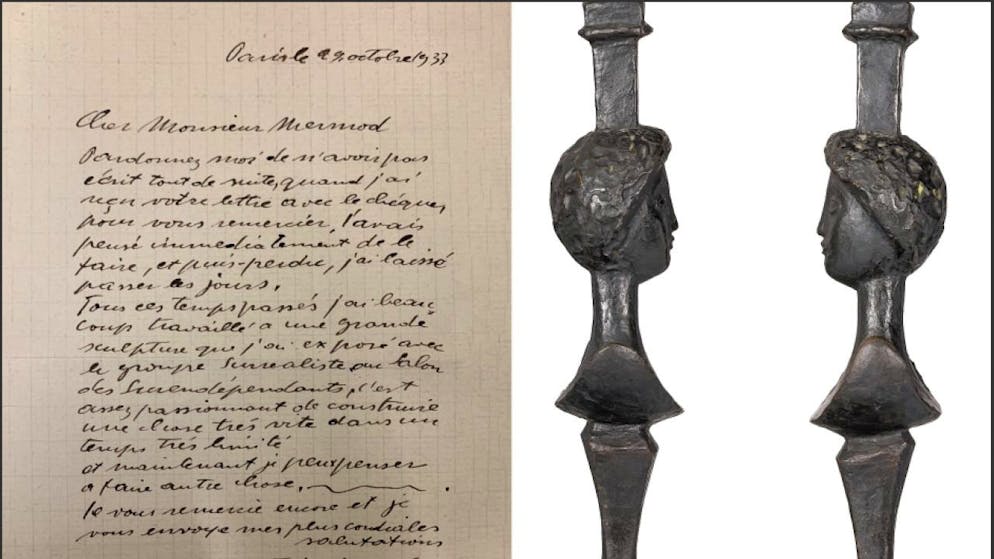 Paris le 29 octobre 1933
Cher Monsieur Mermod
Pardonnez moi de n'avois pas
écrit tout de suite, quand j'ai
reçu votre lettre avec le chéque,
pour vous remercier, j'avais
pensé immediatement de le
faire, et puis perdu, j'ai laissé
passer les jours.
Tous ces temps passés j'ai beau
coup travaillé a une grande
sculpture que j'ai exposé avec
le groupe Surrealiste au Salon
des Surendépendants, c'est
assez passionnant de construire
une chose trés vite dans un
temps trés limité
et maintenant je peux penser
a faire autre chose.
Je vous remercie encore et je
vous envoye mes plus cordiales
salutations